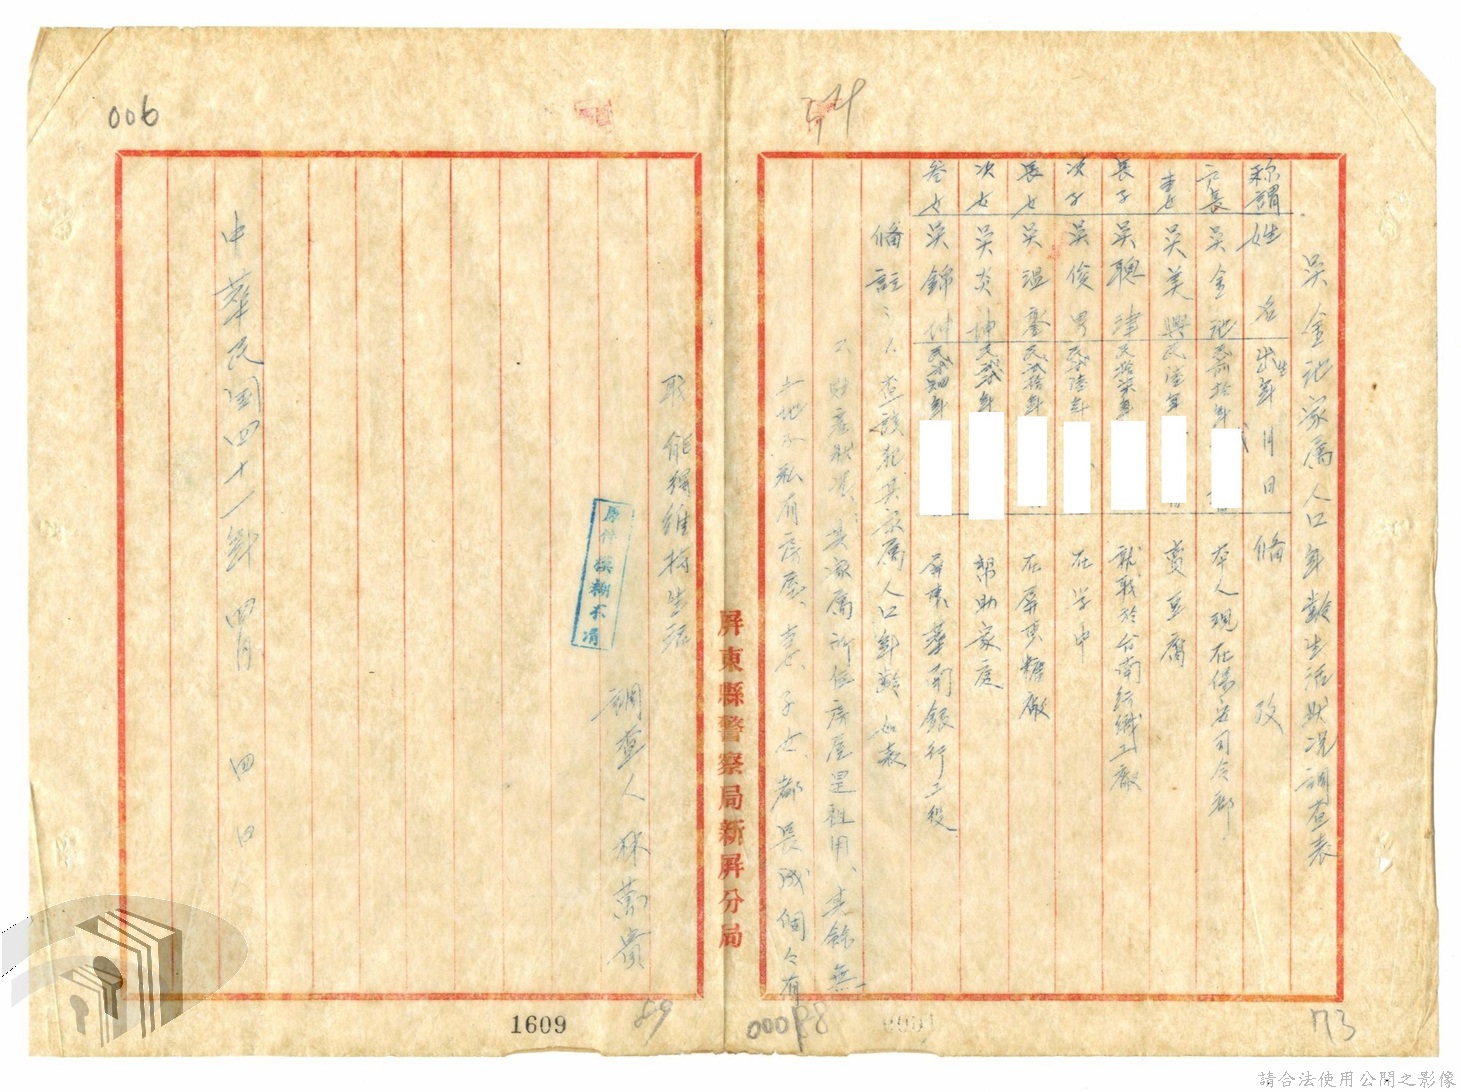 吳金池家屬人口年齡生活狀况調查表
稱謂 姓名 出生年月日 備攷
户長 吳金池 民前拾年 本人現在保安司令部
妻 吳美興 民陸年 賣豆腐
長子 吳聰津 民拾柒年 就職於台南行織工廠
次子 吳俊男 民貳陸年 在学中
長女 吳温 民貳拾年 在屏東糖廠
次女 吳炎坤 民 年 幫助家庭
叁女 吳錦 民貳 年 屏東華南銀行工役
備註：1、查該犯其家属人口年齡如表
2、財產狀况、其家属所住房屋是租用、其餘無
土地及私有房屋、妻、子女、都長成個々有
职能夠維持生活
調查人 林萬貴
中華民国四十一年四月四日
屏東縣警察局新屏分局
原件模糊不清
006
54
1609
89
00088
73
請合法使用公開之影像